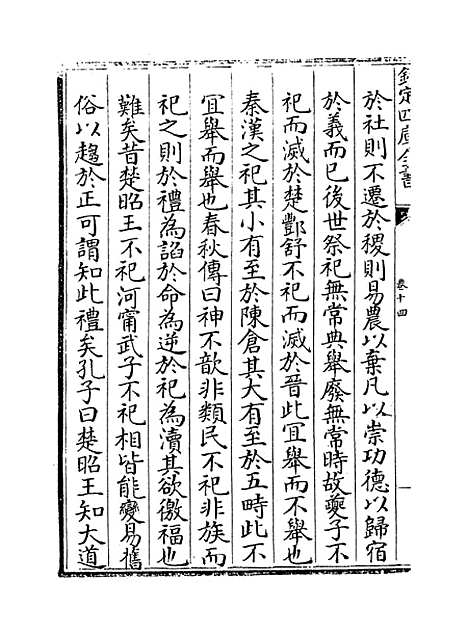 欽定四庫全書
卷十四
於社則不遷於稷則易農以棄凡以崇功德以歸宿
於義而已後世祭祀無常典舉廢無常時故夔子不
祀而滅於楚酆舒不祀而滅於晉此宜舉而不舉也
秦漢之祀其小有至於陳倉其大有至於五畤此不
宜舉而舉也春秋傳曰神不歆非類民不祀非族而
祀之則於禮為諂於命為逆於祀為瀆其欲徼福也
難矣昔楚昭王不祀河甯武子不祀相皆能變易舊
俗以趨於正可謂知此禮矣孔子曰楚昭王知大道